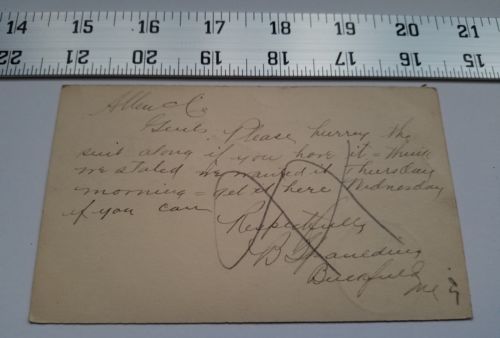 14 15 16 17 18 19 20 21
22 21 20 19 18 17 16 15
Allen & Co.
Gents. Please hurry the
suit along if you have it = think
we stated we wanted it Thursday
morning = get it here Wednesday
if you can
Respectfully
B Spaulding
Buckfield
Me